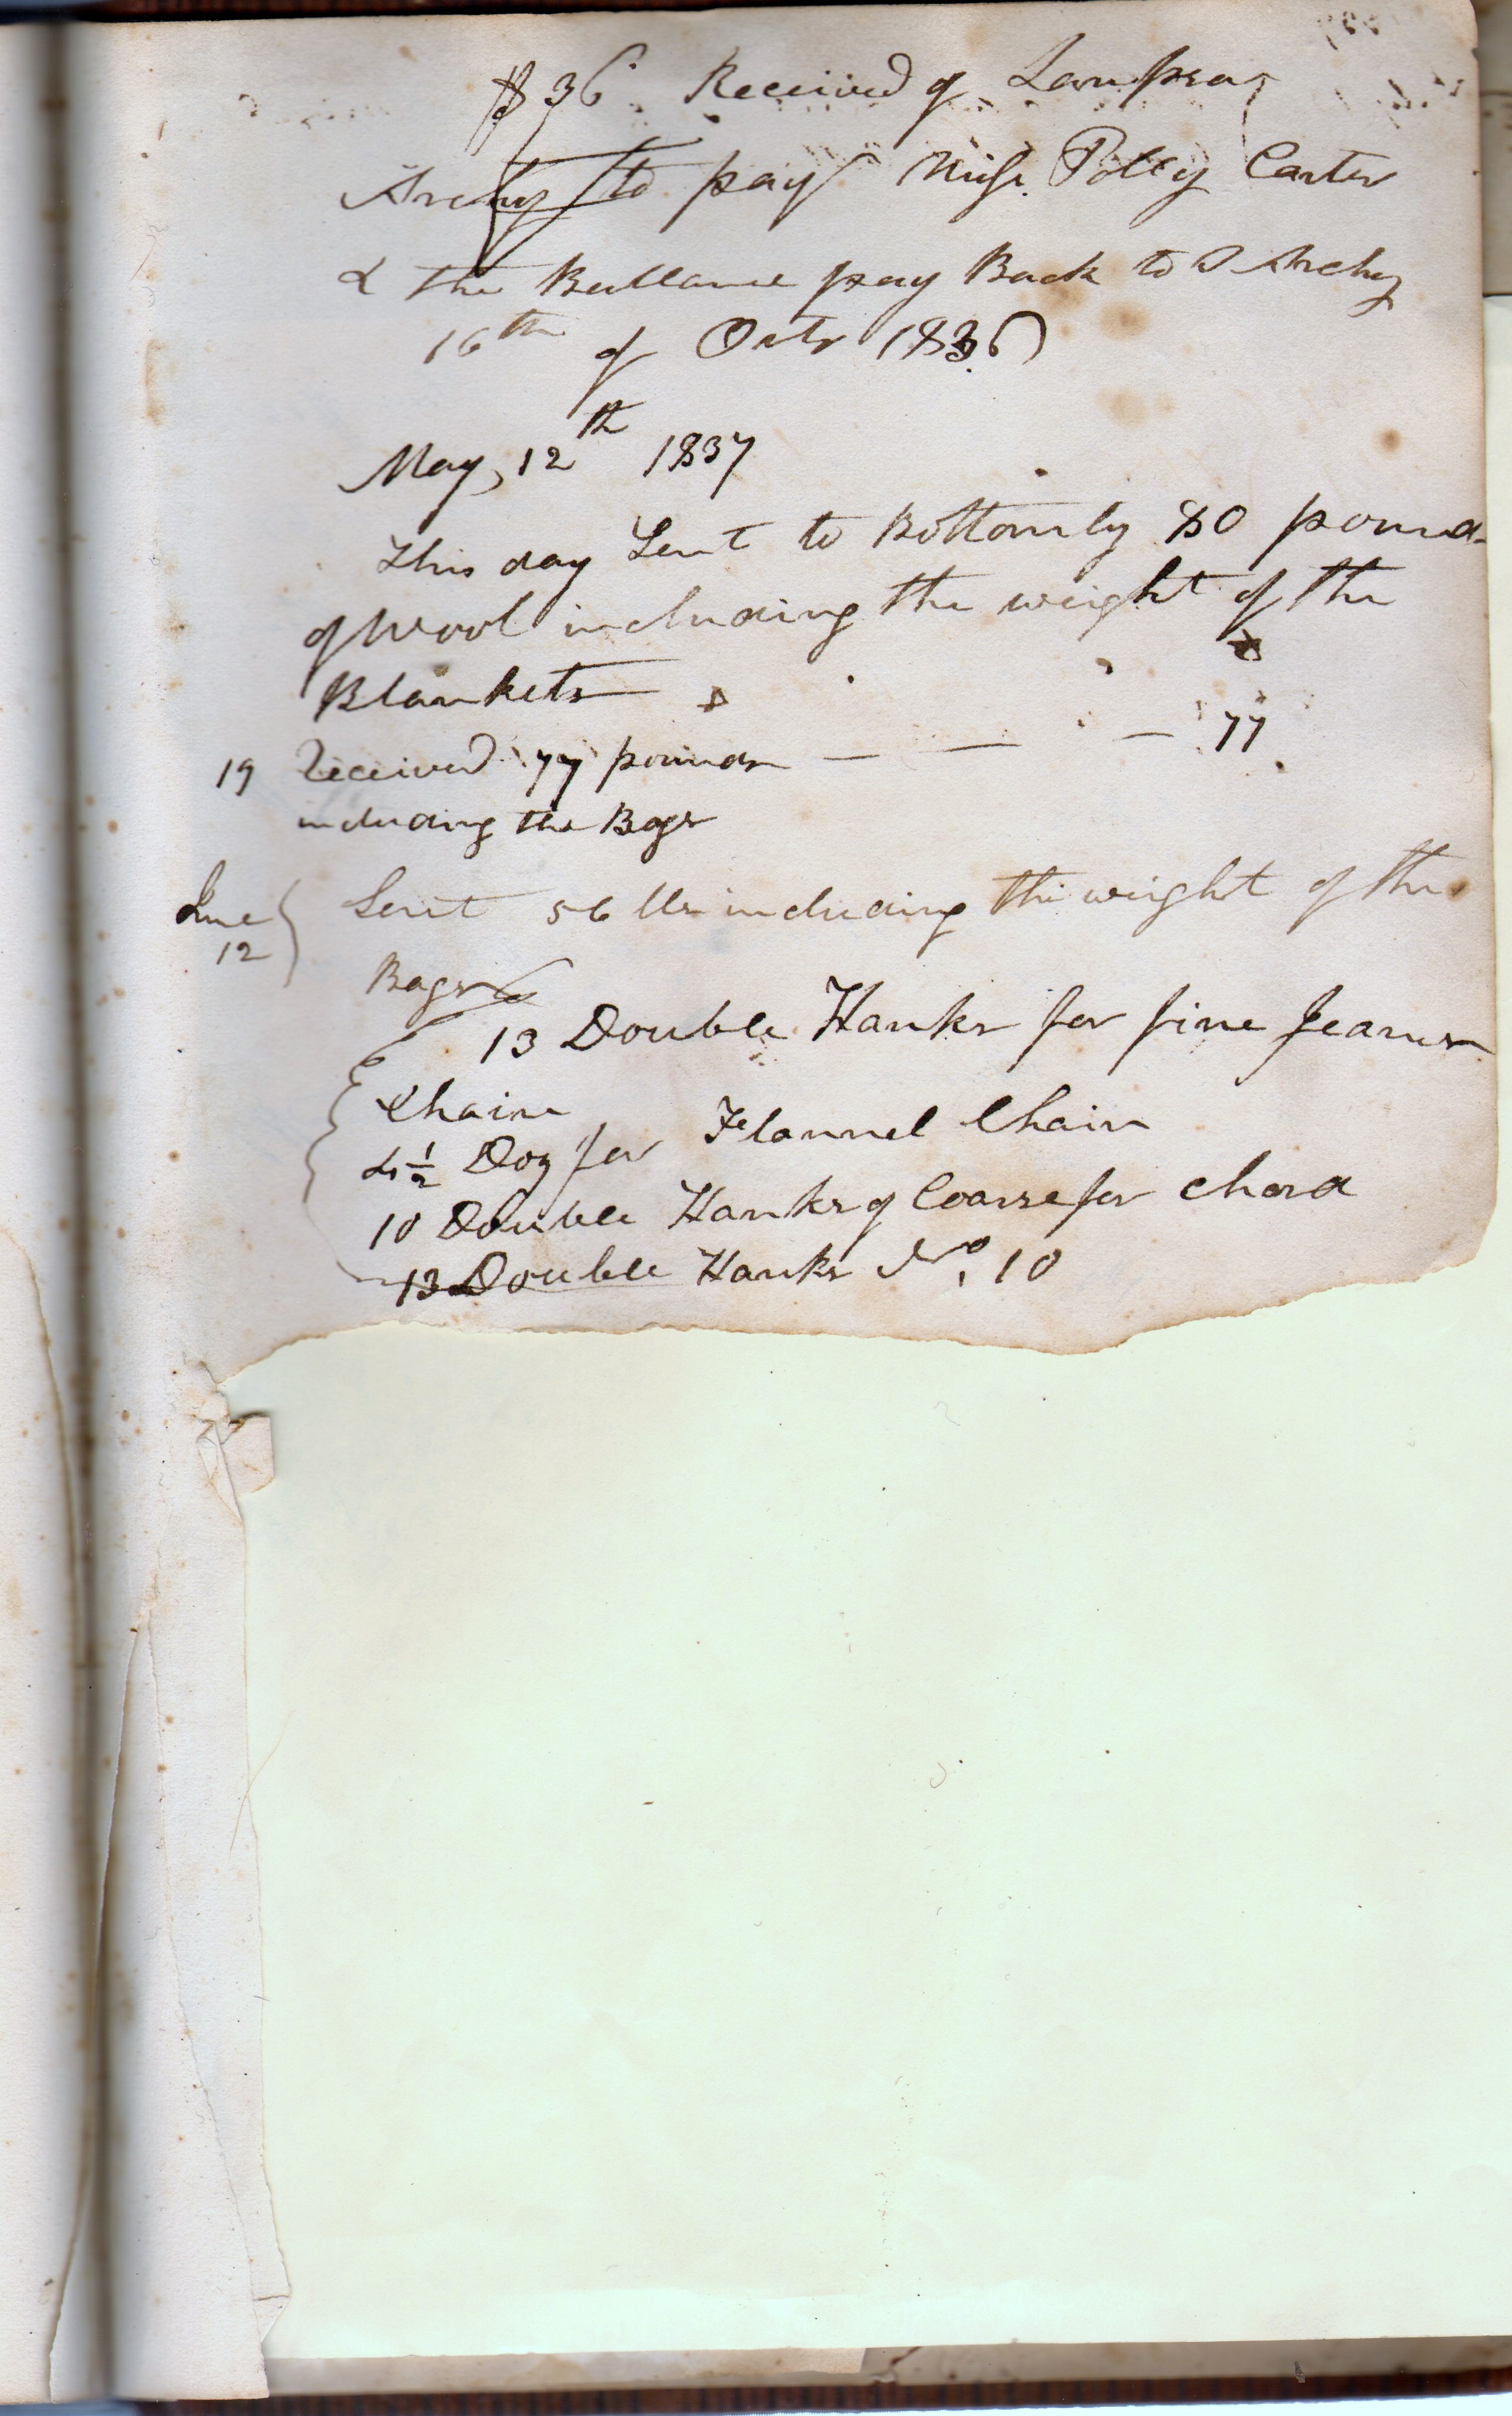 $36 Received of Sampson
Archy to pay Miss Polly Carter
& the Ballance pay Back to S Archy
16th of Octr 1836
May, 12th 1837
This day Sent to Bottomly 80 pound
of Wool including the weight of the
Blankets
19 Received 77 pounds — — — 77
including the Bags
June 12 } Sent 56 lbs including the weight of the
Bags
13 Double Hanks for fine Jeanes
Chain
4½ Doz for Flannel Chain
10 Double Hanks of Coarse for Chain
13 Double Hanks No. 10